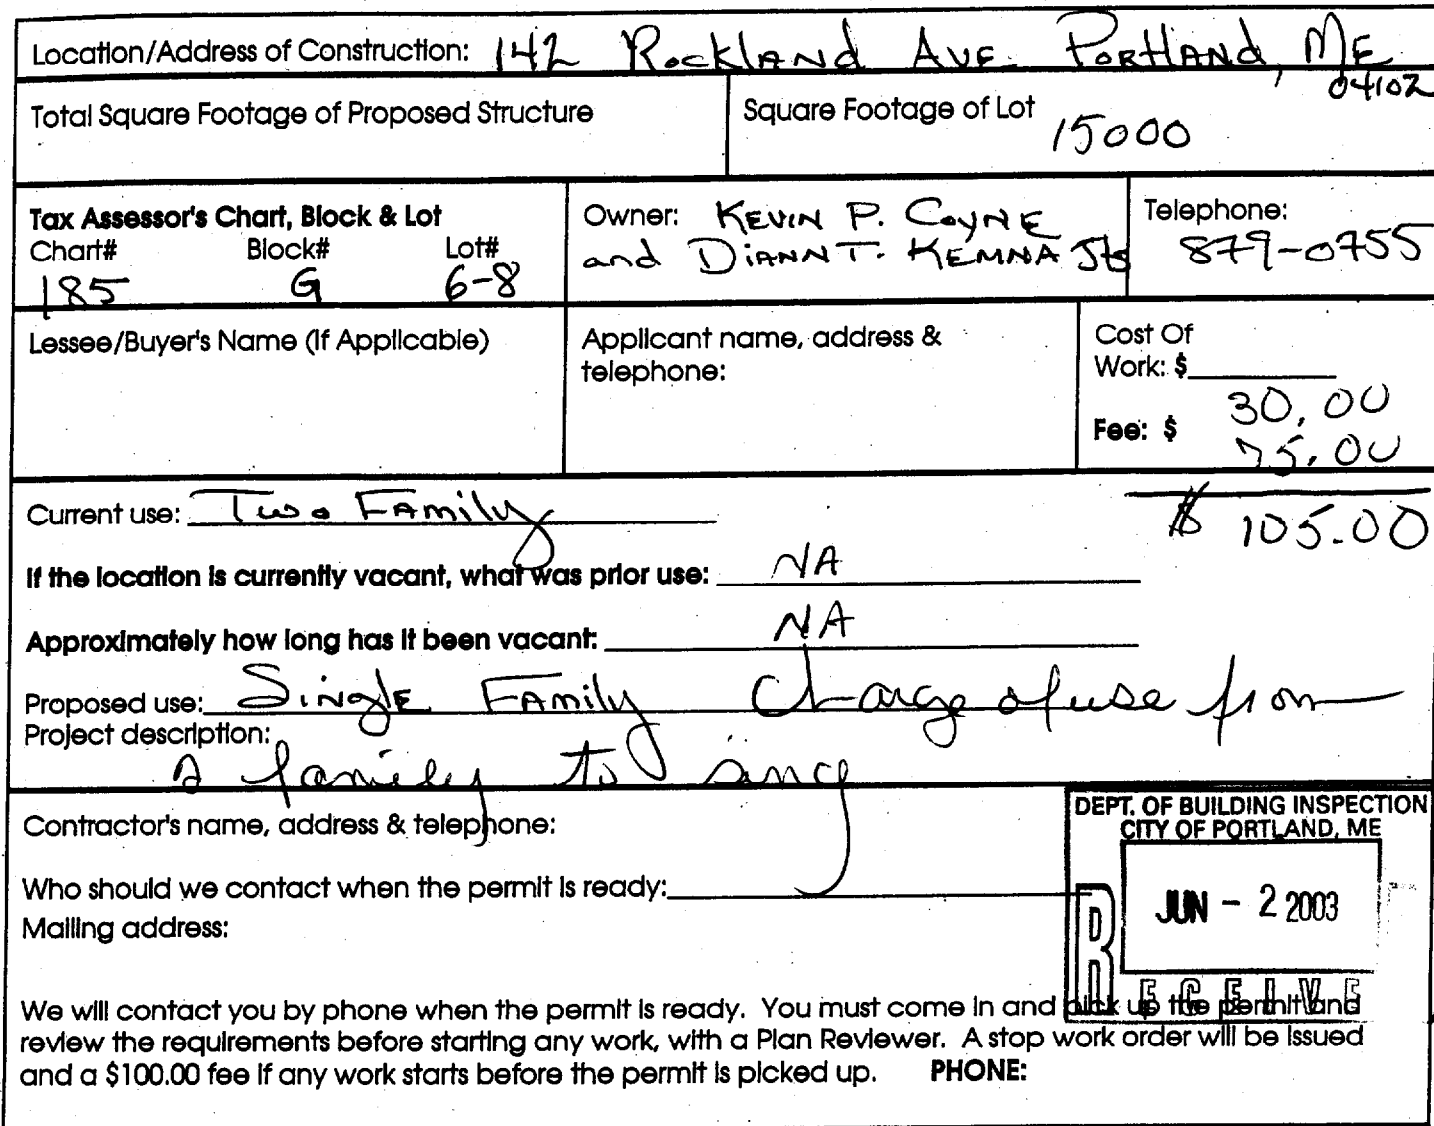 Location/Address of Construction: 142 Rockland Ave. Portland, ME
04102
Total Square Footage of Proposed Structure
Square Footage of Lot 15000
Tax Assessor's Chart, Block & Lot
Chart# Block# Lot#
185 G 6-8
Owner: Kevin P. Coyne
and Diann T. Kemna Jts
Telephone:
879-0755
Lessee/Buyer's Name (If Applicable)
Applicant name, address &
telephone:
Cost Of
Work: $
Fee: $ 30.00
75.00
$ 105.00
Current use: Two Family
If the location is currently vacant, what was prior use: NA
Approximately how long has it been vacant: NA
Proposed use: Single Family Change of use from
Project description:
2 family to
Contractor's name, address & telephone:
Who should we contact when the permit is ready:
Mailing address:
DEPT. OF BUILDING INSPECTION
CITY OF PORTLAND, ME
JUN - 2 2003
RECEIVE
We will contact you by phone when the permit is ready. You must come in and pick up the permit and
review the requirements before starting any work, with a Plan Reviewer. A stop work order will be issued
and a $100.00 fee if any work starts before the permit is picked up. PHONE: